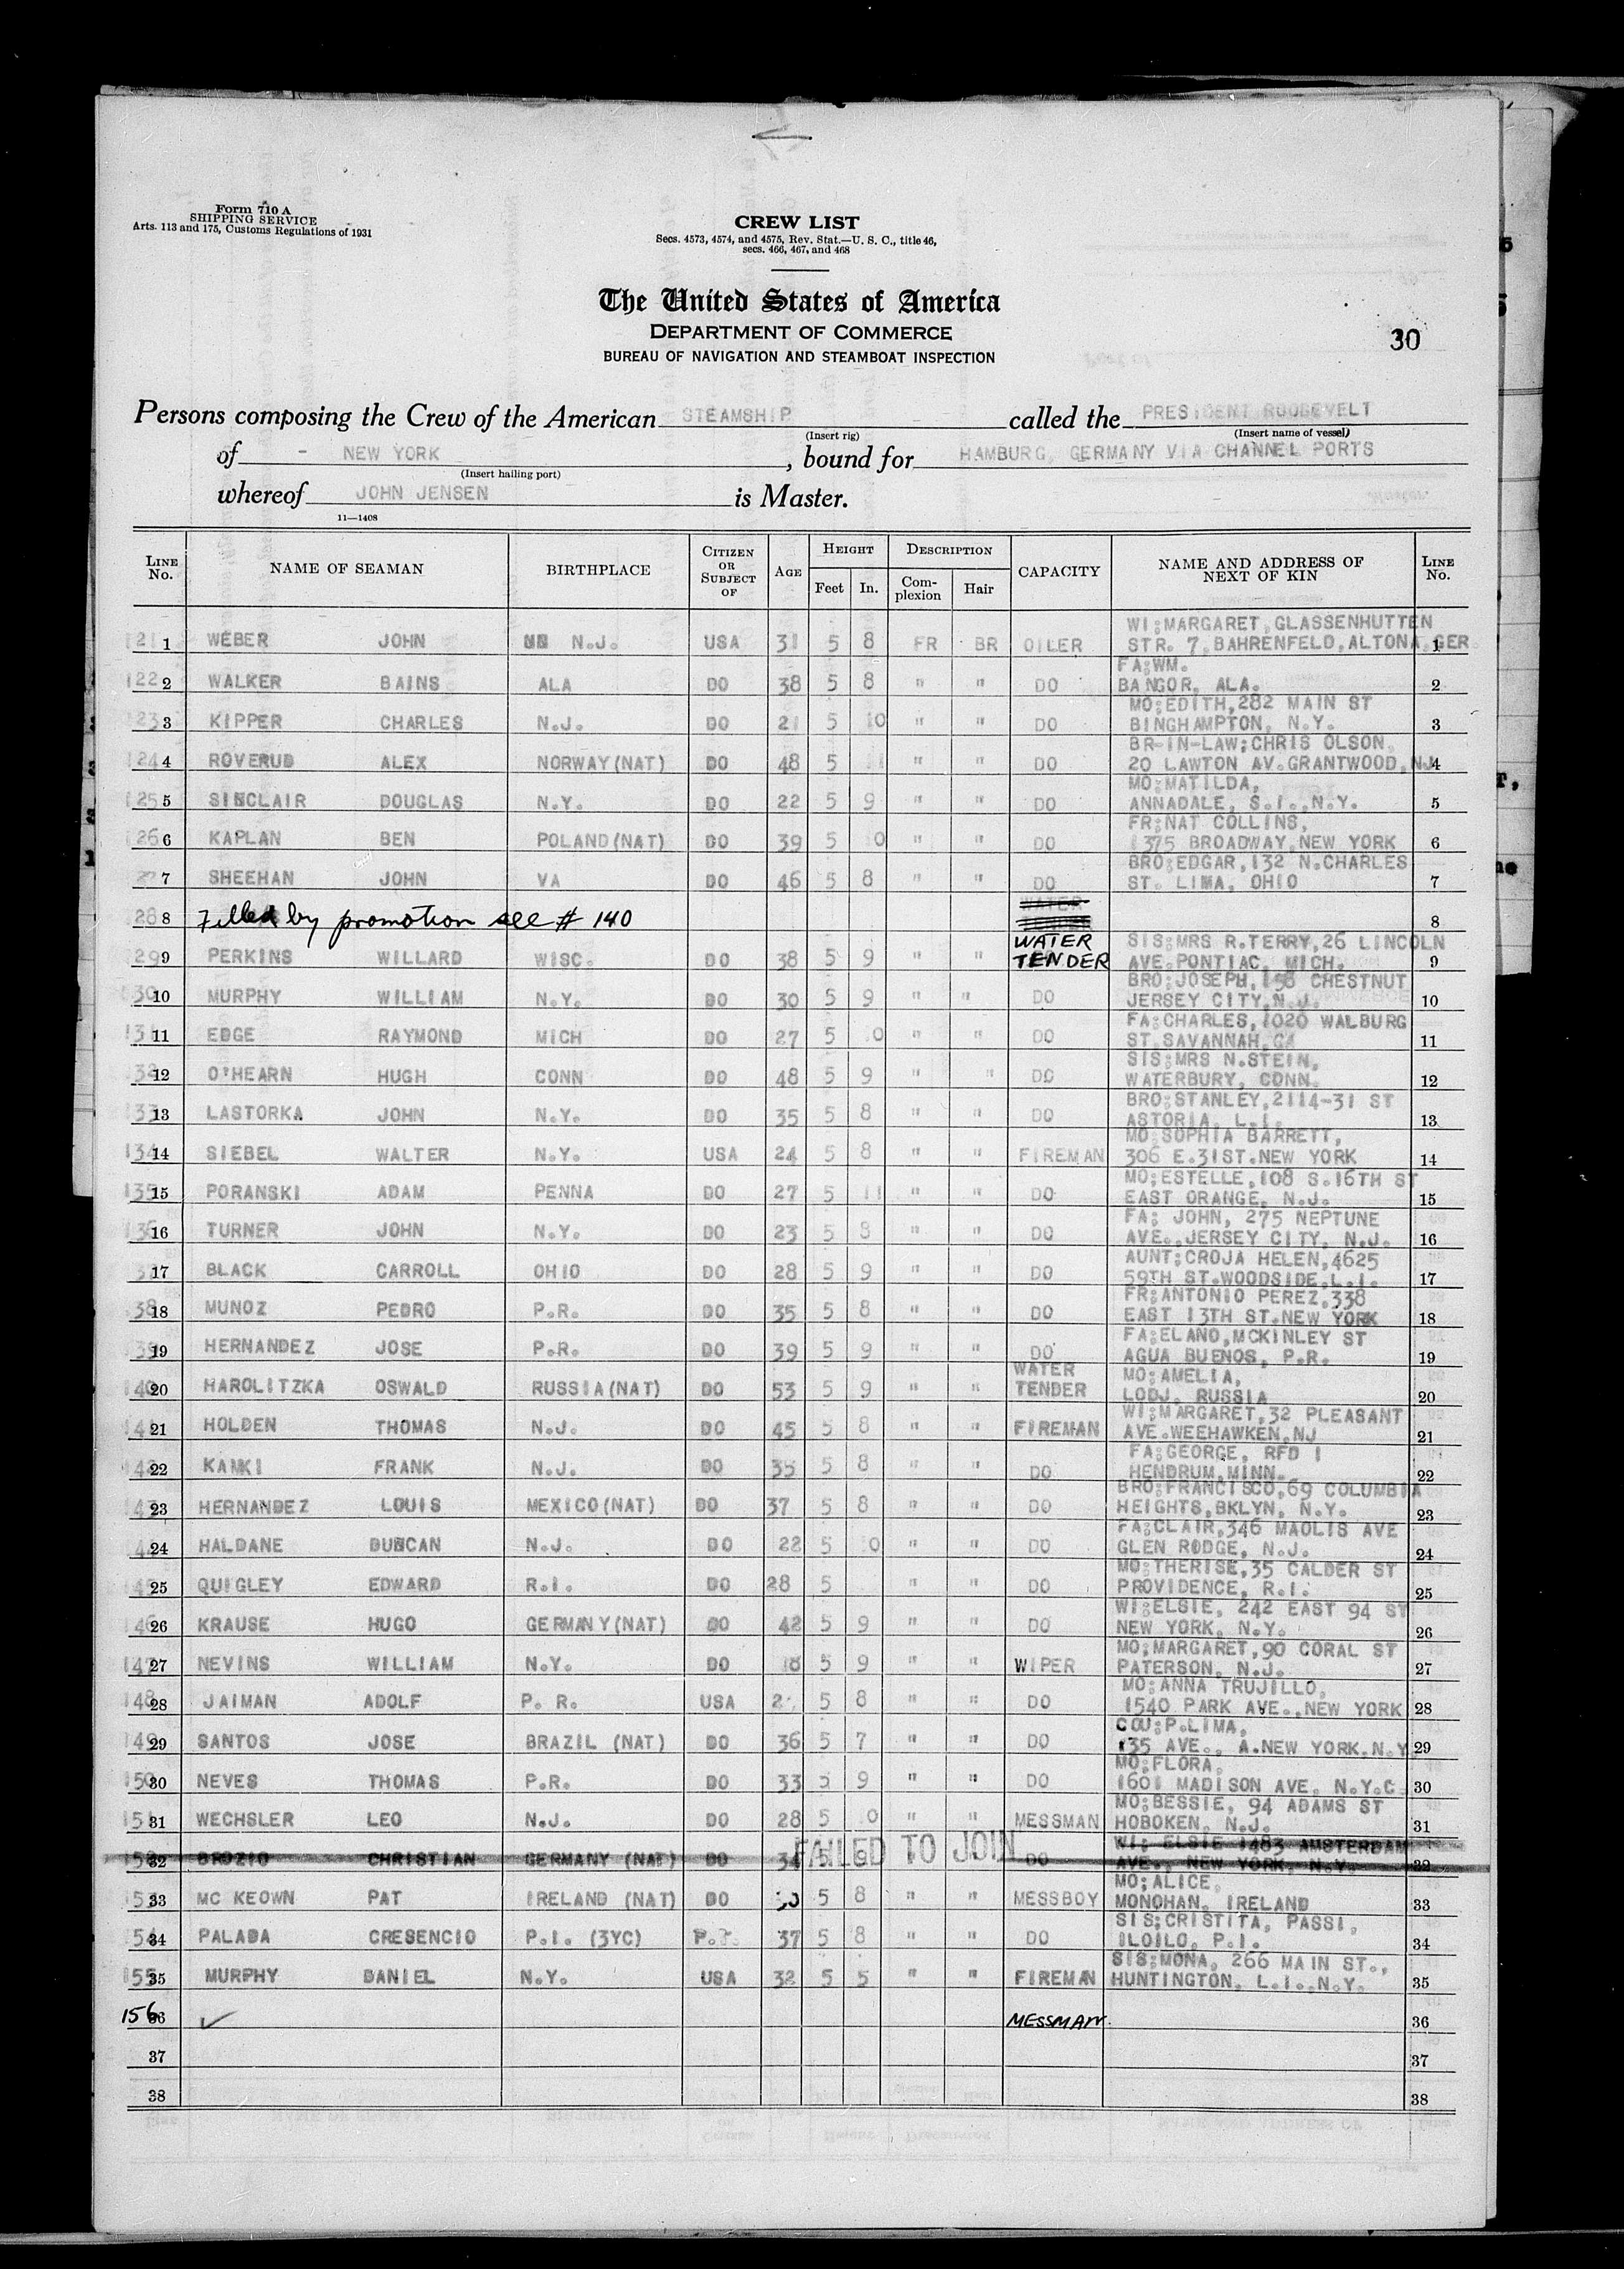 Form 710 A
SHIPPING SERVICE
Arts. 113 and 175, Customs Regulations of 1931
CREW LIST
Secs. 4573, 4574, and 4575, Rev. Stat.—U. S. C., title 46,
secs. 466, 467, and 468
The United States of America
DEPARTMENT OF COMMERCE
BUREAU OF NAVIGATION AND STEAMBOAT INSPECTION
30
Persons composing the Crew of the American STEAMSHIP called the PRESIDENT ROOSEVELT
(Insert rig) (Insert name of vessel)
of - NEW YORK, bound for HAMBURG, GERMANY VIA CHANNEL PORTS
(Insert hailing port)
whereof JOHN JENSEN is Master.
11—1408
LINE No. NAME OF SEAMAN BIRTHPLACE CITIZEN OR SUBJECT OF AGE HEIGHT Feet In. DESCRIPTION Complexion Hair CAPACITY NAME AND ADDRESS OF NEXT OF KIN LINE No.
WI;MARGARET,GLASSENHUTTEN
121 1 WEBER JOHN N.J. USA 31 5 8 FR BR OILER STR. 7,BAHRENFELD,ALTONA,GER. 1
FA;WM.
122 2 WALKER BAINS ALA DO 38 5 8 " " DO BANGOR, ALA. 2
MO;EDITH,282 MAIN ST
123 3 KIPPER CHARLES N.J. DO 21 5 10 " " DO BINGHAMPTON, N.Y. 3
BR-IN-LAW;CHRIS OLSON,
124 4 ROVERUD ALEX NORWAY(NAT) DO 48 5 11 " " DO 20 LAWTON AV.GRANTWOOD,NJ 4
MO;MATILDA,
125 5 SINCLAIR DOUGLAS N.Y. DO 22 5 9 " " DO ANNADALE, S.I.,N.Y. 5
FR;NAT COLLINS,
126 6 KAPLAN BEN POLAND(NAT) DO 39 5 10 " " DO 1375 BROADWAY,NEW YORK 6
BRO;EDGAR,132 N.CHARLES
27 7 SHEEHAN JOHN VA DO 46 5 8 " " DO ST. LIMA, OHIO 7
WATER
28 8 Filled by promotion see # 140 8
WATER SIS;MRS R.TERRY,26 LINCOLN
29 9 PERKINS WILLARD WISC. DO 38 5 9 " " TENDER AVE.PONTIAC, MICH. 9
BRO;JOSEPH,158 CHESTNUT
130 10 MURPHY WILLIAM N.Y. DO 30 5 9 " " DO JERSEY CITY,N.J. 10
FA;CHARLES,1020 WALBURG
131 11 EDGE RAYMOND MICH DO 27 5 10 " " DO ST.SAVANNAH,GA 11
SIS;MRS N.STEIN,
132 12 O'HEARN HUGH CONN DO 48 5 9 " " DO WATERBURY, CONN. 12
BRO;STANLEY,2114-31 ST
133 13 LASTORKA JOHN N.Y. DO 35 5 8 " " DO ASTORIA, L.I. 13
MO;SOPHIA BARRETT,
134 14 SIEBEL WALTER N.Y. USA 24 5 8 " " FIREMAN 306 E.31ST.NEW YORK 14
MO;ESTELLE,108 S.16TH ST
135 15 PORANSKI ADAM PENNA DO 27 5 11 " " DO EAST ORANGE, N.J. 15
FA; JOHN, 275 NEPTUNE
136 16 TURNER JOHN N.Y. DO 23 5 8 " " DO AVE.,JERSEY CITY, N.J. 16
AUNT;CROJA HELEN,4625
137 17 BLACK CARROLL OHIO DO 28 5 9 " " DO 59TH ST.WOODSIDE,L.I. 17
FR;ANTONIO PEREZ,338
138 18 MUNOZ PEDRO P.R. DO 35 5 8 " " DO EAST 13TH ST.NEW YORK 18
FA;ELANO,MCKINLEY ST
139 19 HERNANDEZ JOSE P.R. DO 39 5 9 " " DO AGUA BUENOS, P.R. 19
WATER MO;AMELIA,
140 20 HAROLITZKA OSWALD RUSSIA(NAT) DO 53 5 9 " " TENDER LODJ, RUSSIA 20
WI;MARGARET,32 PLEASANT
141 21 HOLDEN THOMAS N.J. DO 45 5 8 " " FIREMAN AVE.WEEHAWKEN,NJ 21
FA;GEORGE, RFD 1
142 22 KAMKI FRANK N.J. DO 35 5 8 " " DO HENDRUM,MINN. 22
BRO;FRANCISCO,69 COLUMBIA
143 23 HERNANDEZ LOUIS MEXICO(NAT) DO 37 5 8 " " DO HEIGHTS,BKLYN, N.Y. 23
FA;CLAIR,346 MAOLIS AVE
144 24 HALDANE DUNCAN N.J. DO 22 5 10 " " DO GLEN RODGE, N.J. 24
MO;THERISE,35 CALDER ST
145 25 QUIGLEY EDWARD R.I. DO 28 5 " " DO PROVIDENCE, R.I. 25
WI;ELSIE, 242 EAST 94 ST
146 26 KRAUSE HUGO GERMANY(NAT) DO 42 5 9 " " DO NEW YORK, N.Y. 26
MO;MARGARET,90 CORAL ST
147 27 NEVINS WILLIAM N.Y. DO 18 5 9 " " WIPER PATERSON, N.J. 27
MO;ANNA TRUJILLO,
148 28 JAIMAN ADOLF P. R. USA 5 8 " " DO 1540 PARK AVE.,NEW YORK 28
COU;P.LIMA,
149 29 SANTOS JOSE BRAZIL (NAT) DO 36 5 7 " " DO 135 AVE., A.NEW YORK.N.Y 29
MO;FLORA,
150 30 NEVES THOMAS P.R. DO 33 5 9 " " DO 1601 MADISON AVE. N.Y.C. 30
MO;BESSIE, 94 ADAMS ST
151 31 WECHSLER LEO N.J. DO 28 5 10 " " MESSMAN HOBOKEN, N.J. 31
FAILED TO JOIN WI; ELSIE 1483 AMSTERDAM
152 32 BROZIO CHRISTIAN GERMANY (NAT) DO 34 5 9 DO AVE., NEW YORK, N.Y. 32
MO;ALICE,
153 33 MC KEOWN PAT IRELAND (NAT) DO 30 5 8 " " MESSBOY MONOHAN, IRELAND 33
SIS;CRISTITA, PASSI,
154 34 PALADA CRESENCIO P.I. (3YC) 37 5 8 " " DO ILOILO, P.I. 34
SIS;MONA, 266 MAIN ST.,
155 35 MURPHY DANIEL N.Y. USA 32 5 5 " " FIREMAN HUNTINGTON, L.I.,N.Y. 35
156 36 ✓ MESSMAN. 36
37 37
38 38